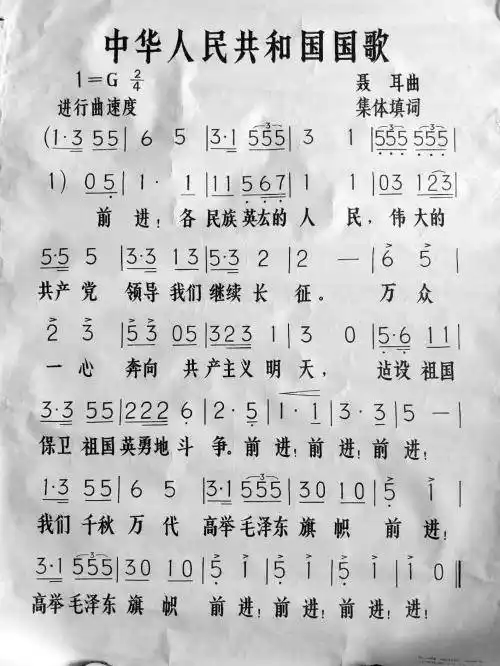 中华人民共和国国歌
1=G 2/4 聂耳曲
进行曲速度 集体填词
(1·3 55 | 6 5 | 3·1 555 | 3 1 | 555 555 |
1) 05 | 1· 1 | 11 567 | 1 1 | 03 123 |
前进！各民族英厷的人民，伟大的
5·5 5 | 3·3 13 | 5·3 2 | 2 — | 6 5 |
共产党 领导我们继续长征。 万众
2 3 | 53 05 | 323 1 | 3 0 | 5·6 11 |
一心 奔向 共产主义明天， 建设祖国
3·3 55 | 222 6 | 2· 5 | 1· 1 | 3· 3 | 5 — |
保卫祖国英勇地斗争。前进！前进！前进！
1·3 55 | 6 5 | 3·1 555 | 30 10 | 5 1 |
我们千秋万代 高举毛泽东旗帜 前进！
3·1 555 | 30 10 | 5 1 | 5 1 | 5 1 | 1 0 ‖
高举毛泽东旗帜 前进！前进！前进！进！